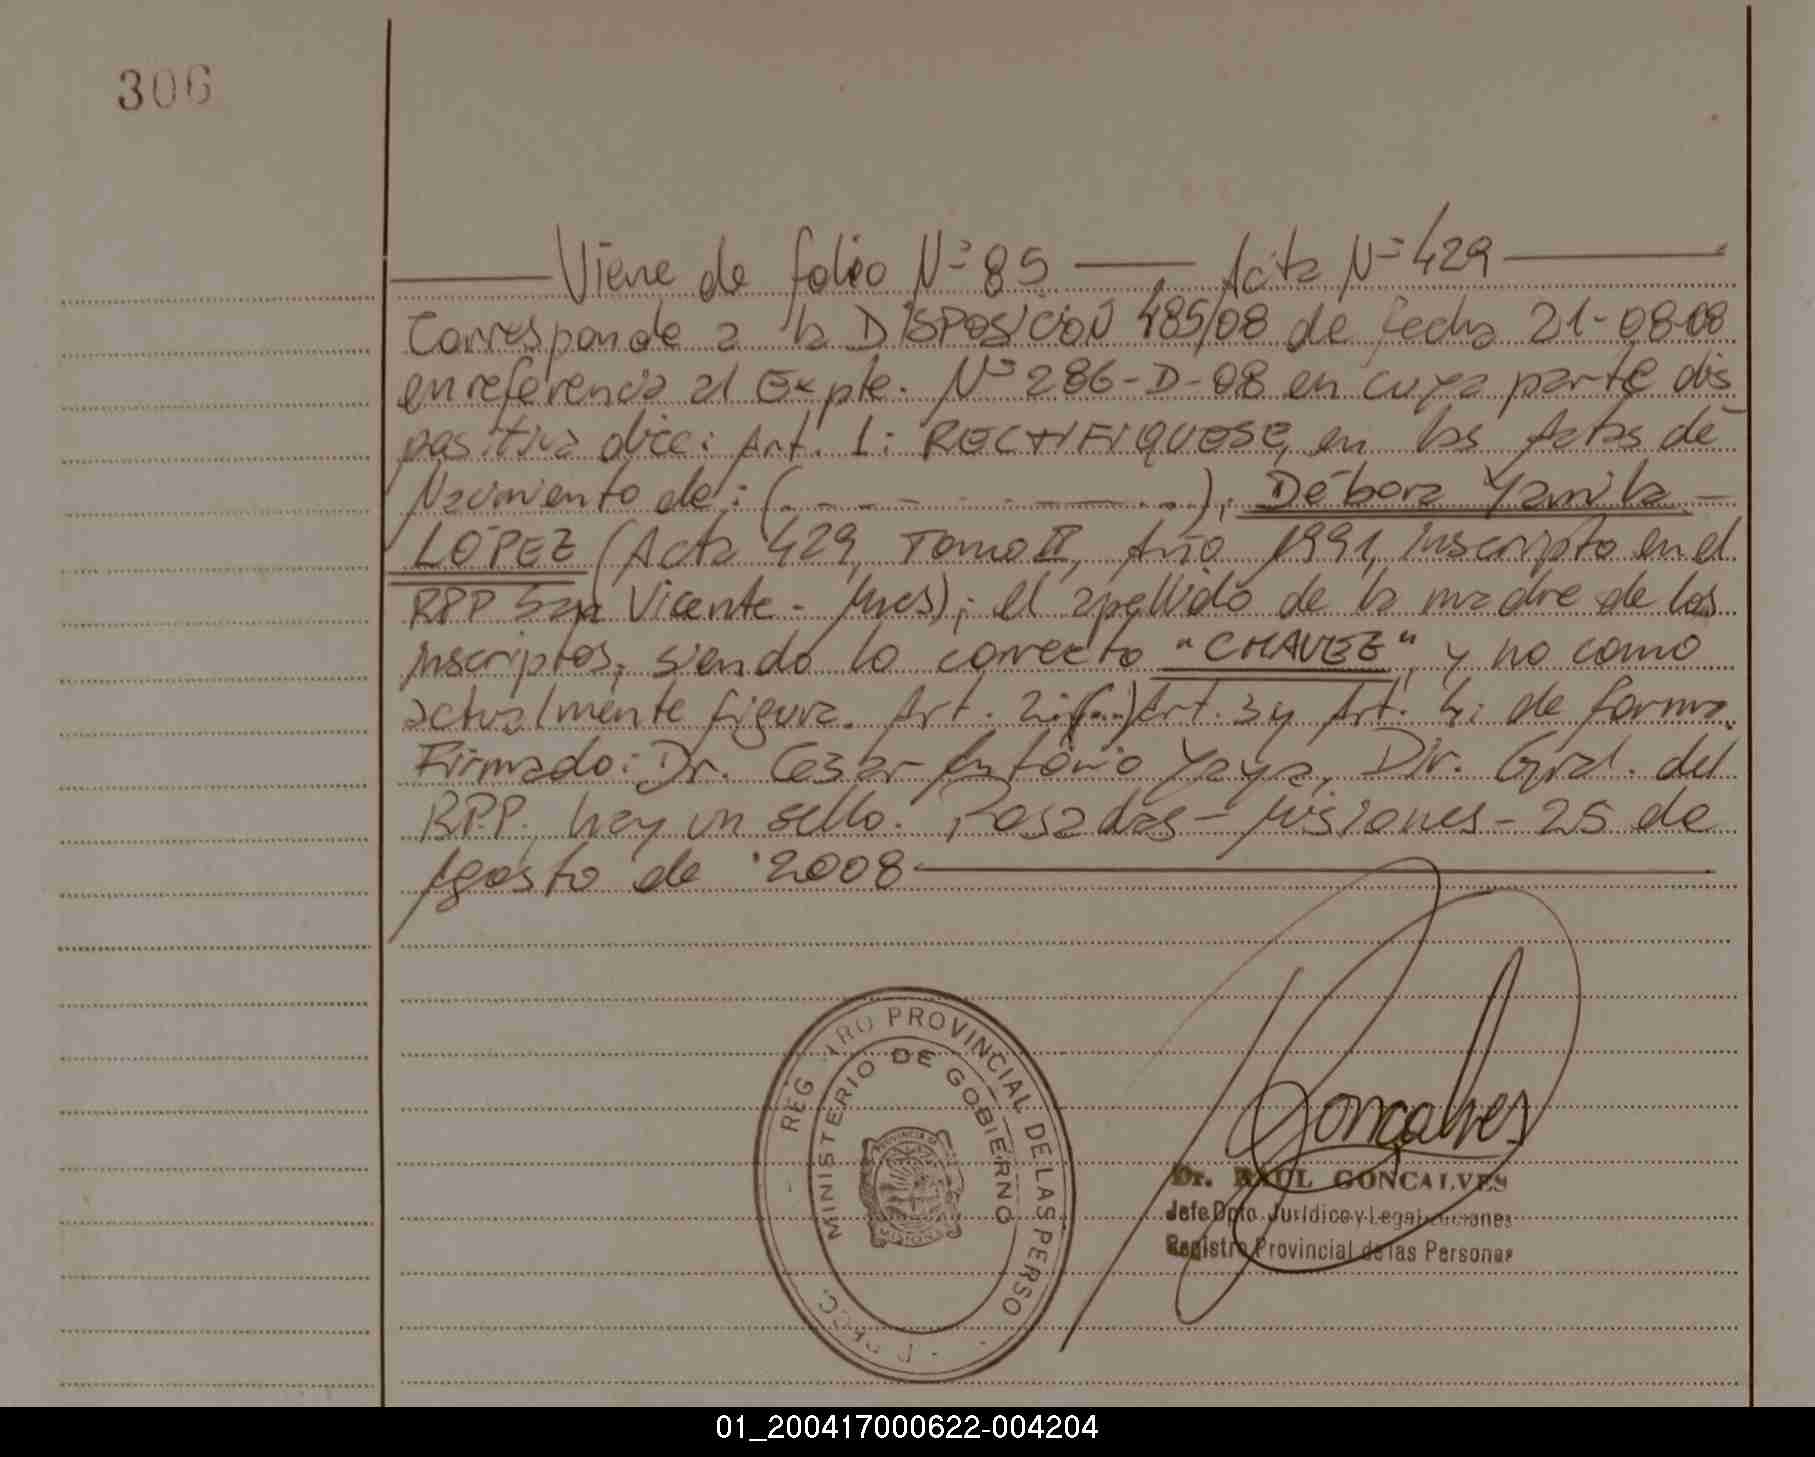 306
Viene de folio Nº 85 — Acta Nº 429
Corresponde a la DISPOSICION 485/08 de fecha 21-08-08
en referencia al Expte. Nº 286-D-08 en cuya parte dis
positiva dice: Art. 1: RECTIFIQUESE, en las Actas de
Nacimiento de: (...........); Débora Yamila -
LÓPEZ (Acta 429, Tomo II, Año 1991, inscripto en el
RPP San Vicente - Mnes); el apellido de la madre de los
inscriptos, siendo lo correcto "CHAVEZ", y no como
actualmente figura. Art. 2:(...) Art. 3 y Art. 4: de forma.
Firmado: Dr. Cesar Antonio Yaya, Dir. Gral. del
R.P.P., hay un sello. Posadas - Misiones - 25 de
Agosto de 2008
REG TRO PROVINCIAL DE LAS PERSO
MINISTERIO DE GOBIERNO
PROVINCIA DE
MISIONES
Goncalves
Dr. RAUL GONCALVES
Jefe Dpto. Jurídico y Legalizaciones
Registro Provincial de las Personas
01_200417000622-004204